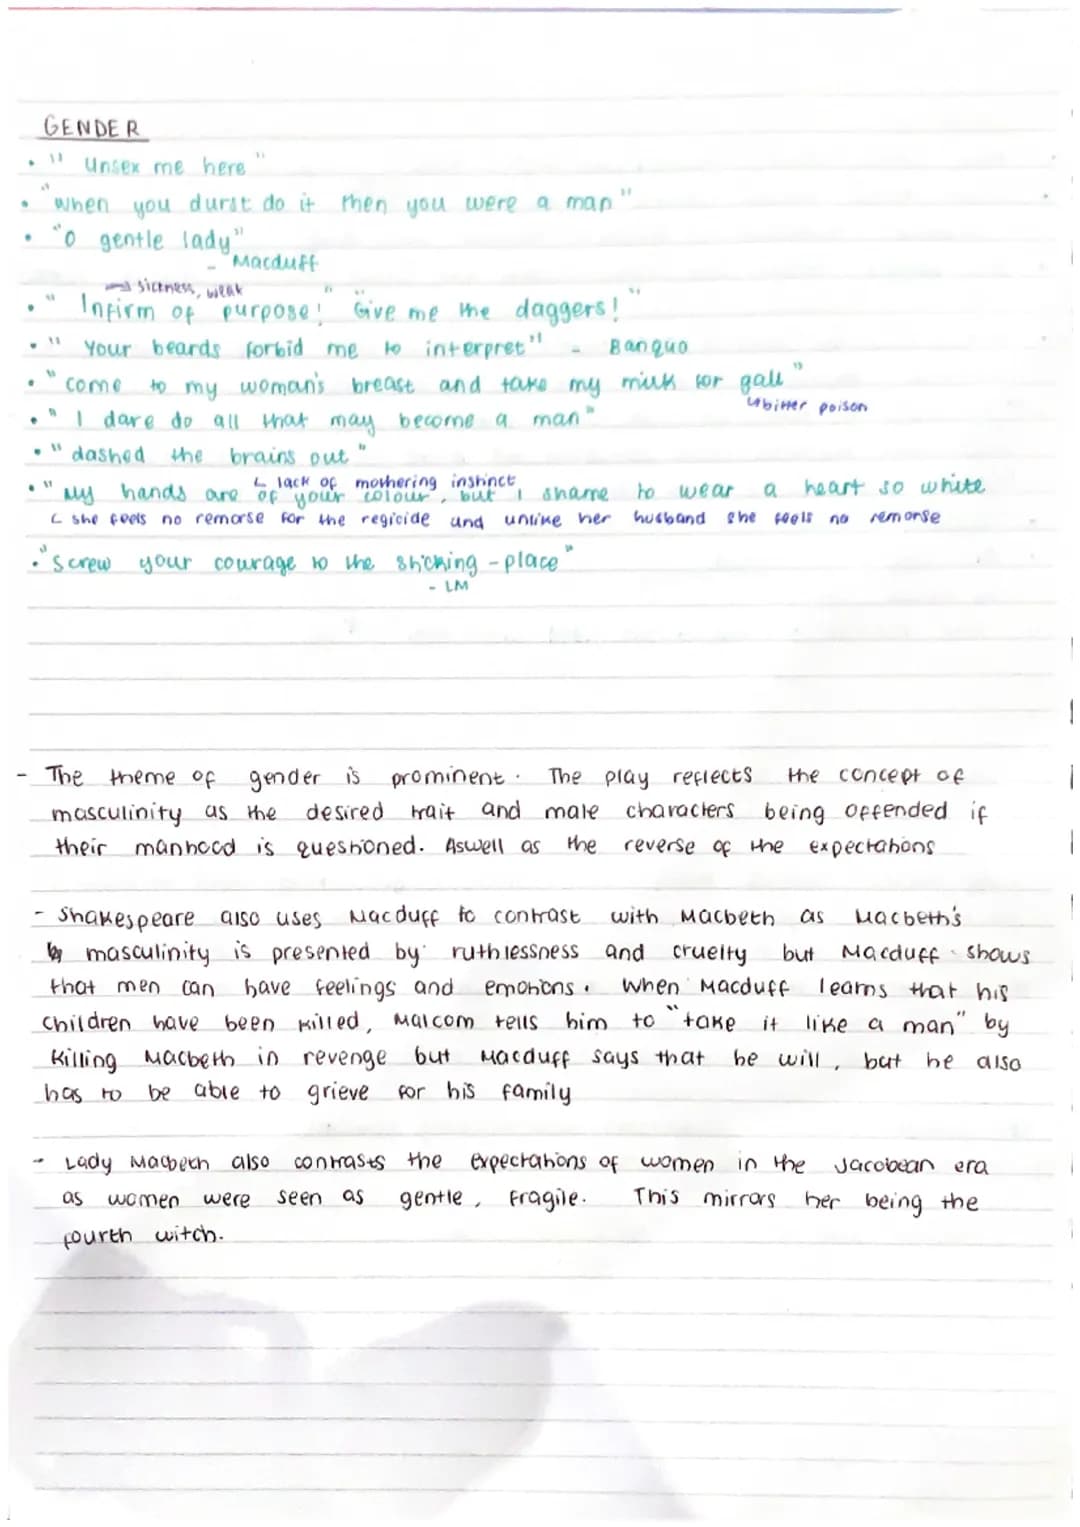 GENDER
• "Unsex me here"
• "when you durst do it then you were a man"
• "O gentle lady"
- Macduff
→ sickness, weak
• "Infirm of purpose!" Give me the daggers!"
• "Your beards forbid me to interpret" - Banquo
• "come to my woman's breast and take my milk for gall"
↳ bitter poison
• "I dare do all that may become a man"
• "dashed the brains out"
↳ lack of mothering instinct
• "My hands are of your colour, but I shame to wear a heart so white
↳ she feels no remorse for the regicide and unlike her husband she feels no remorse
• "Screw your courage to the sticking-place"
- LM
- The theme of gender is prominent. The play reflects the concept of
masculinity as the desired trait and male characters being offended if
their manhood is questioned. Aswell as the reverse of the expectations
- Shakespeare also uses Macduff to contrast with Macbeth as Macbeth's
masculinity is presented by ruthlessness and cruelty but Macduff shows
that men can have feelings and emotions. When Macduff learns that his
children have been killed, Malcom tells him to "take it like a man" by
killing Macbeth in revenge but Macduff says that he will, but he also
has to be able to grieve for his family
- Lady Macbeth also contrasts the expectations of women in the Jacobean era
as women were seen as gentle, fragile. This mirrors her being the
fourth witch.